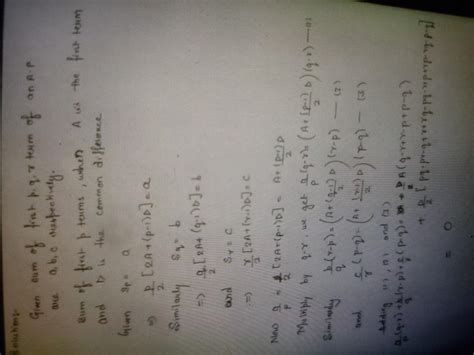 Solution:
Given sum of first p, q, r term of an A.P
are a, b, c respectively.
Sum of first p terms, where A is the first term
and D is the common difference
Given Sp = a
⇒ p/2 [2A+(p-1)D] = a
Similarly Sq = b
⇒ q/2 [2A+(q-1)D] = b
and Sr = c
⇒ r/2 [2A+(r-1)D] = c
Now a/p = 1/2 [2A+(p-1)D] = A + (p-1)/2 D
Multiply by q-r we get a/p (q-r) = (A + (p-1)/2 D)(q-r) — (1)
Similarly b/q (r-p) = (A + (q-1)/2 D)(r-p) — (2)
and c/r (p-q) = (A + (r-1)/2 D)(p-q) — (3)
adding (1), (2) and (3)
a/p (q-r) + b/q (r-p) + c/r (p-q) = A(q-r+r-p+p-q)
= 0